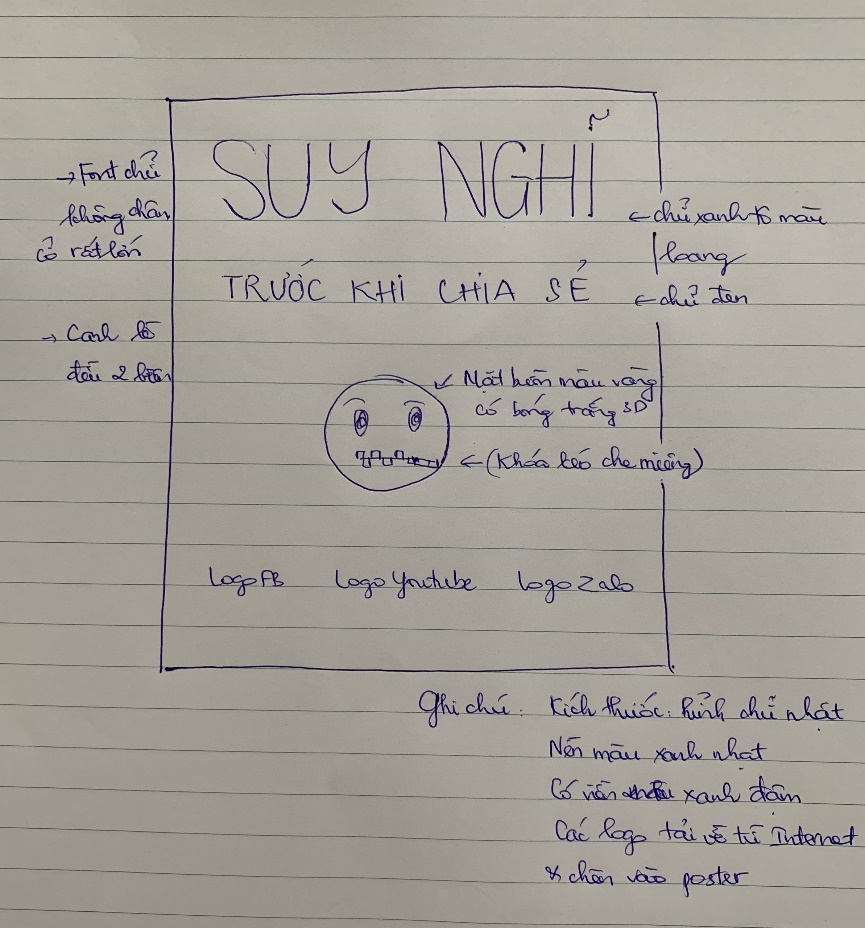 SUY NGHĨ
→ Font chữ
không chân
cỡ rất lớn
← chữ xanh tô màu
loang
TRƯỚC KHI CHIA SẺ
← chữ đen
→ Canh lề
đều 2 bên
Mặt buồn màu vàng
có bóng trắng 3D
← (Khóa kéo che miệng)
Logo FB Logo Youtube Logo Zalo
Ghi chú: Kích thước: hình chữ nhật
Nền màu xanh nhạt
Có viền màu xanh đậm
Các logo tải về từ Internet
& chèn vào poster